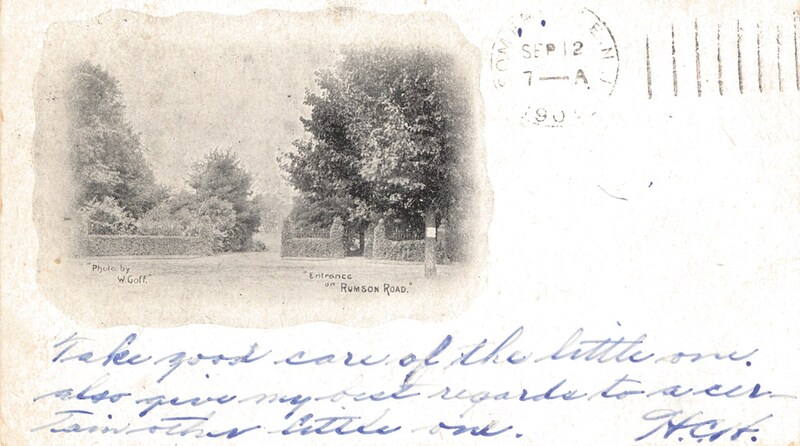 SEP 12
7—A
190
"Photo by
W. Goff."
"Entrance
on RUMSON ROAD."
Take good care of the little one.
also give my best regards to a cer-
tain other little one. HCH.